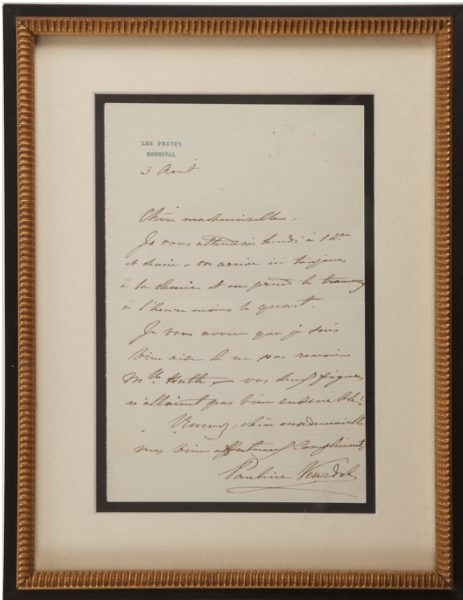 LES FRENES
BOUGIVAL
3 Août
Chère mademoiselle.
Je vous attendrai lundi à 1 h
et demie - on arrive ici toujours
à la demie et on prend le tramway
à l'heure moins le quart.
Je vous avoue que je suis
bien aise de ne pas revoir
Mlle - vos deux
n'allaient pas bien ensemble!
Recevez, chère mademoiselle
mes bien affectueux compliments
Pauline Viardot